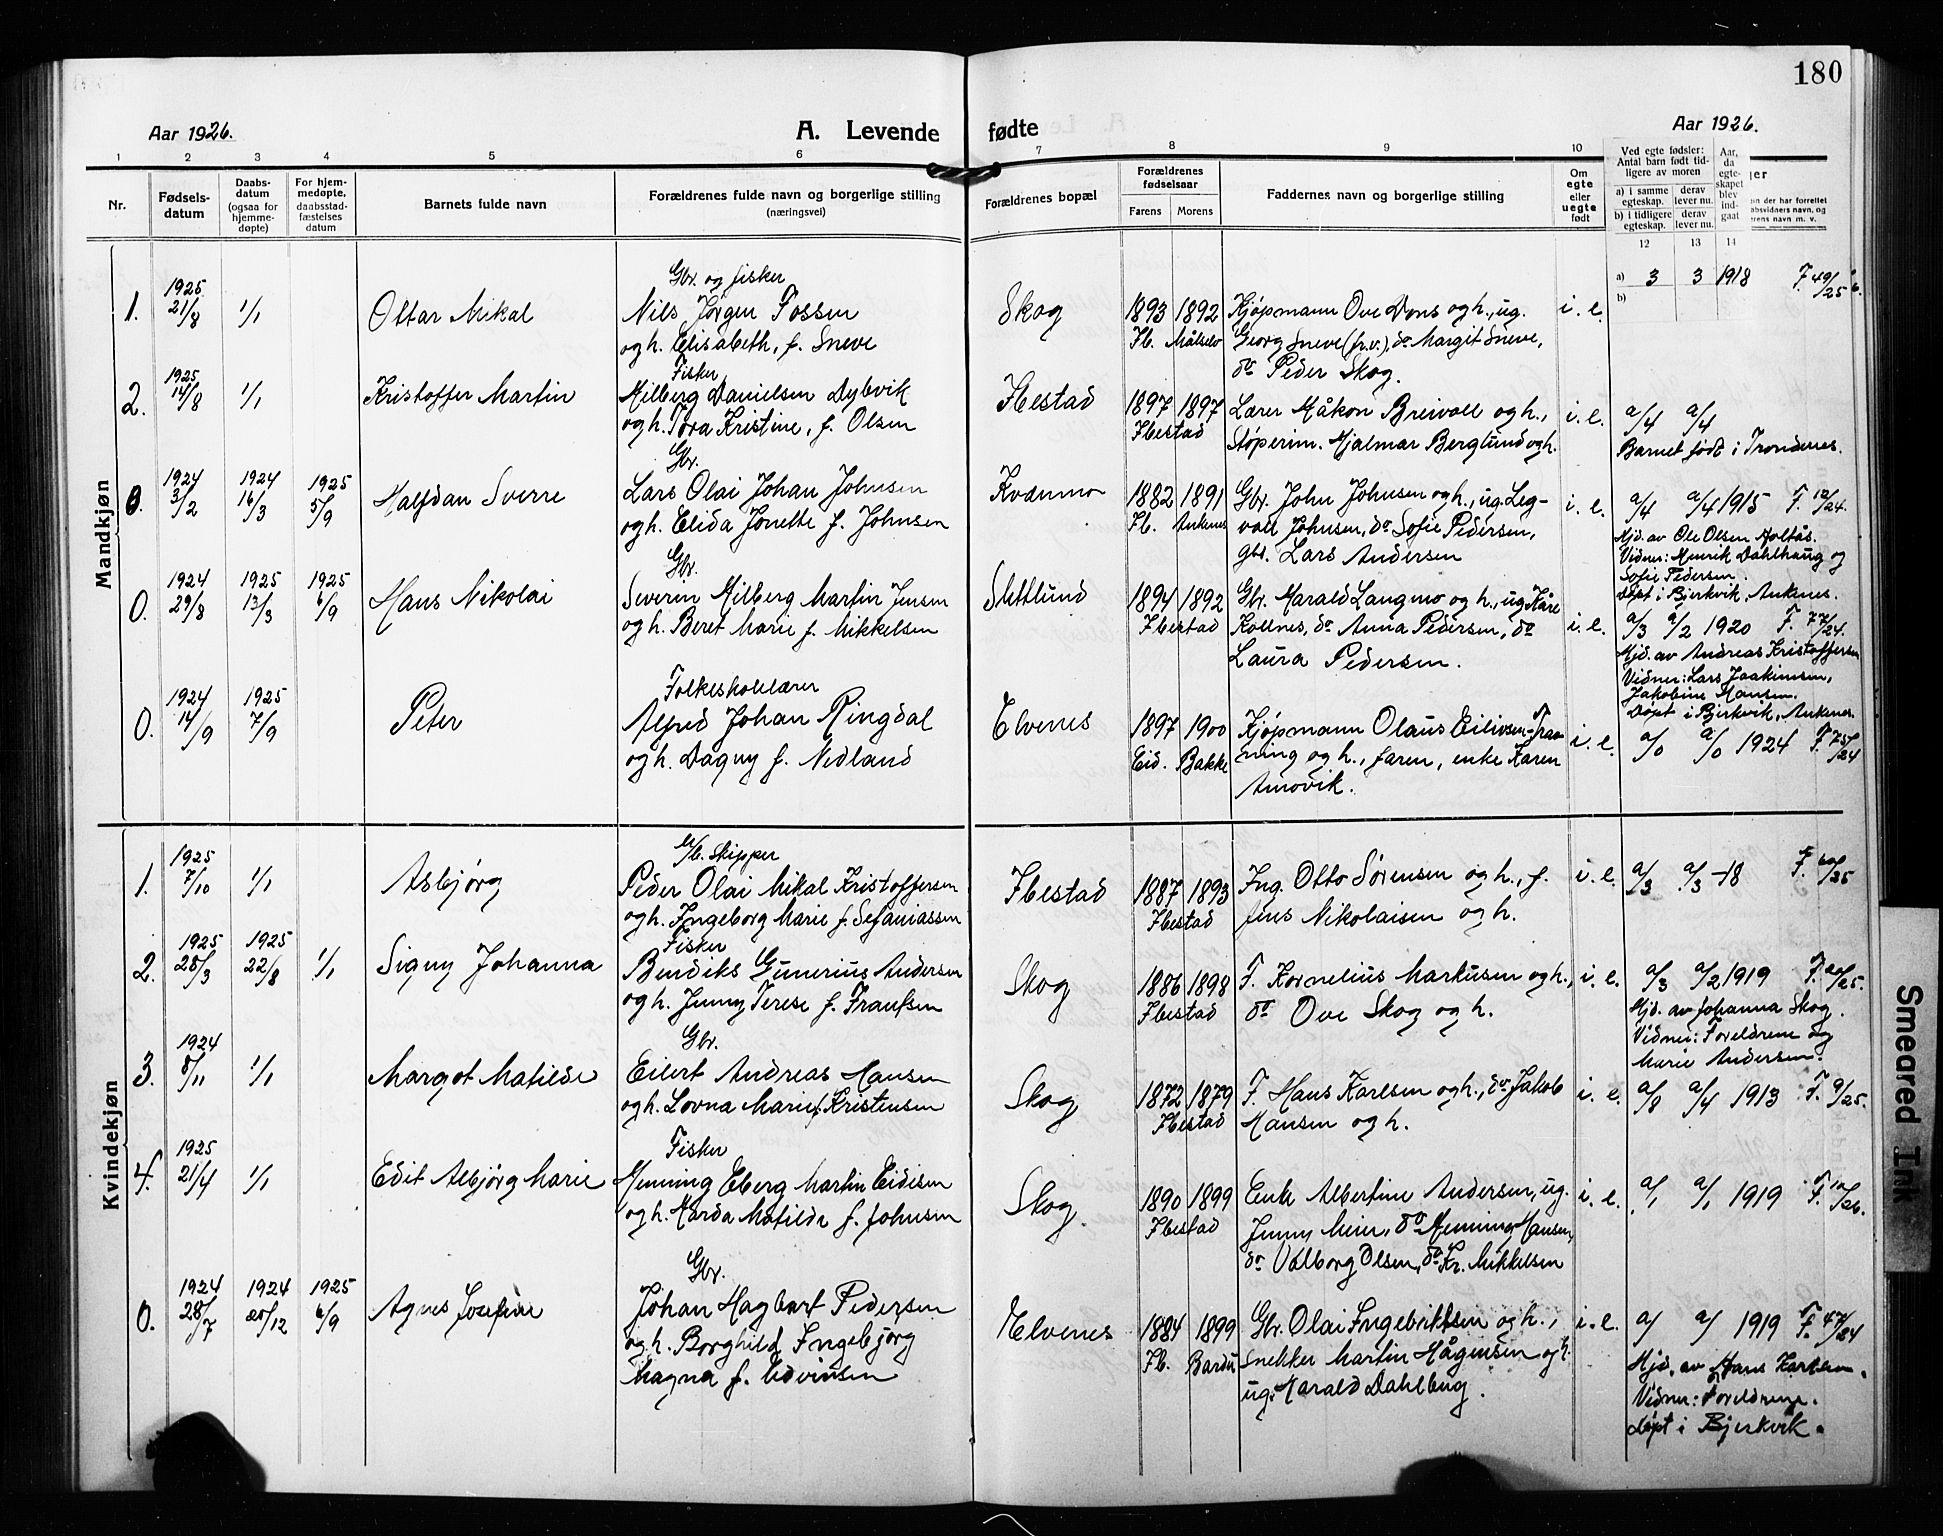 180
Aar 1926.
A. Levende fødte
Aar 1926.
1 2 3 4 5 6 7 8 9 10
Nr.
Fødsels-
datum
Daabs-
datum
(ogsaa for
hjemme-
døpte)
For hjem-
medøpte,
daabsstad-
fæstelses
datum
Barnets fulde navn
Forældrenes fulde navn og borgerlige stilling
(næringsvei)
Forældrenes bopæl
Forældrenes
fødselsaar
Farens Morens
Faddernes navn og borgerlige stilling
Om
egte
eller
uegte
født
Ved egte fødsler:
Antal barn født tid-
ligere av moren
a) i samme
egteskap.
derav
lever nu.
b) i tidligere
egteskap.
derav
lever nu.
Aar,
da
egte-
skapet
blev
ind-
gaat
12 13 14
Mandkjøn
1. 1925 21/8 1/1
Ottar Mikal
Gbr. og fisker
Nils Jørgen Fossen
og h. Elisabeth, f. Sneve
Skog
1893 1892
Ib. Målselv
Kjøpmann Ove Dons og h., ug.
Georg Sneve (fr.v.), do Margit Sneve,
do Peder Skog.
i. e.
a) 3 3 1918
b)
2. 1925 14/8 1/1
Kristoffer Martin
Fisker
Hilberg Danielsen Dybvik
og h. Tora Kristine, f. Olsen
Ibestad
1897 1897
Ibestad
Lærer Håkon Breivoll og h.,
Støperim. Hjalmar Berglund og h.
i. e.
a/4 a/4
Barnet født i Trondenes.
0. 1924 3/2 1924 16/3 1925 5/9
Halfdan Sverre
Gbr.
Lars Olai Johan Johnsen
og h. Elida Jonette f. Johnsen
Kvernmo
1882 1891
Ib. Ankenes
Gbr. John Johnsen og h., ug. Leg-
vall Johnsen, do Sofie Pedersen,
gbr. Lars Andersen
i. e.
a/4 a/4 1915 F. 12/24.
Hjd. av Ole Olsen Holtås.
Vidner: Henrik Dahlhaug og
Sofie Pedersen.
døpt i Bjerkvik, Ankenes.
0. 1924 29/8 1925 13/3 1925 6/9
Hans Nikolai
Gbr.
Severin Hilberg Martin Jensen
og h. Beret Marie f. Mikkelsen
Slettlund
1894 1892
Ibestad
Gbr. Harald Langmo og h., ug. Kåre
Kollnes, do Anna Pedersen, do
Laura Pedersen.
i. e.
a/3 a/2 1920 F. 77/24.
Hjd. av Andreas Kristoffersen
Vidner: Lars Joakimsen,
Jakobine Hansen.
Døpt i Bjerkvik, Ankenes.
0. 1924 14/9 1925 7/9
Peter
Folkeskolelærer
Alfred Johan Ringdal
og h. Dagny f. Nedland
Elvenes
1897 1900
Eid. Bakke
Kjøpmann Olaus Eilivsen
og h., faren, enke Karen
i. e.
a/0 a/0 1924 F. 75/24
Kvindekjøn
1. 1925 7/10 1/1
Asbjørg
M/b. skipper
Peder Olai Mikal Kristoffersen
og h. Ingeborg Marie f. Sefaniassen
Ibestad
1887 1893
Ibestad
Ing. Otto Sørensen og h., f.
Jens Nikolaisen og h.
i. e.
a/3 a/3 -18
2. 1925 28/3 1925 22/8 1/1
Signy Johanna
Fisker
Bendiks Gunerius Andersen
og h. Jenny Terese f. Frantsen
Skog
1886 1898
Ibestad
F. Kornelius Markusen og h.,
do Ove Skog og h.
i. e.
a/3 a/2 1919
Hjd. av Johanna Skog.
Vidner: Foreldrene og
Marie Andersen.
3. 1924 8/11 1/1
Margot Matilde
Gbr.
Eilert Andreas Hansen
og h. Lovna Marie f. Kristensen
Skog
1872 1879
Ibestad
F. Hans Karlsen og h., do Jakob
Hansen og h.
i. e.
a/8 a/4 1913 F. 9/25.
4. 1925 21/4 1/1
Edit Asbjørg Marie
Fisker
Henning Eberg Martin Eidisen
og h. Harda Matilde f. Johnsen
Skog
1890 1899
Ibestad
Enke Albertine Andersen, ug.
Jenny Meier, do Henning Hansen,
do Valborg Olsen, do Kr. Mikkelsen
i. e.
a/1 a/1 1919 F. 10/26.
0. 1924 28/7 1924 28/12 1925 6/9
Agnes Josefine
Gbr.
Johan Hagbart Pedersen
og h. Borghild Ingebjørg
Magna f. Edvinsen
Elvenes
1884 1899
Ib. Bardu
Gbr. Olai Ingebriktsen og h.,
snekker Martin Hågensen og h.
ug. Harald Dahlberg.
i. e.
a/ a/ 1919 F. 47/24
Hjd. av Hans Karlsen.
Vidner: Foreldrene.
døpt i Bjerkvik.
Smeared Ink